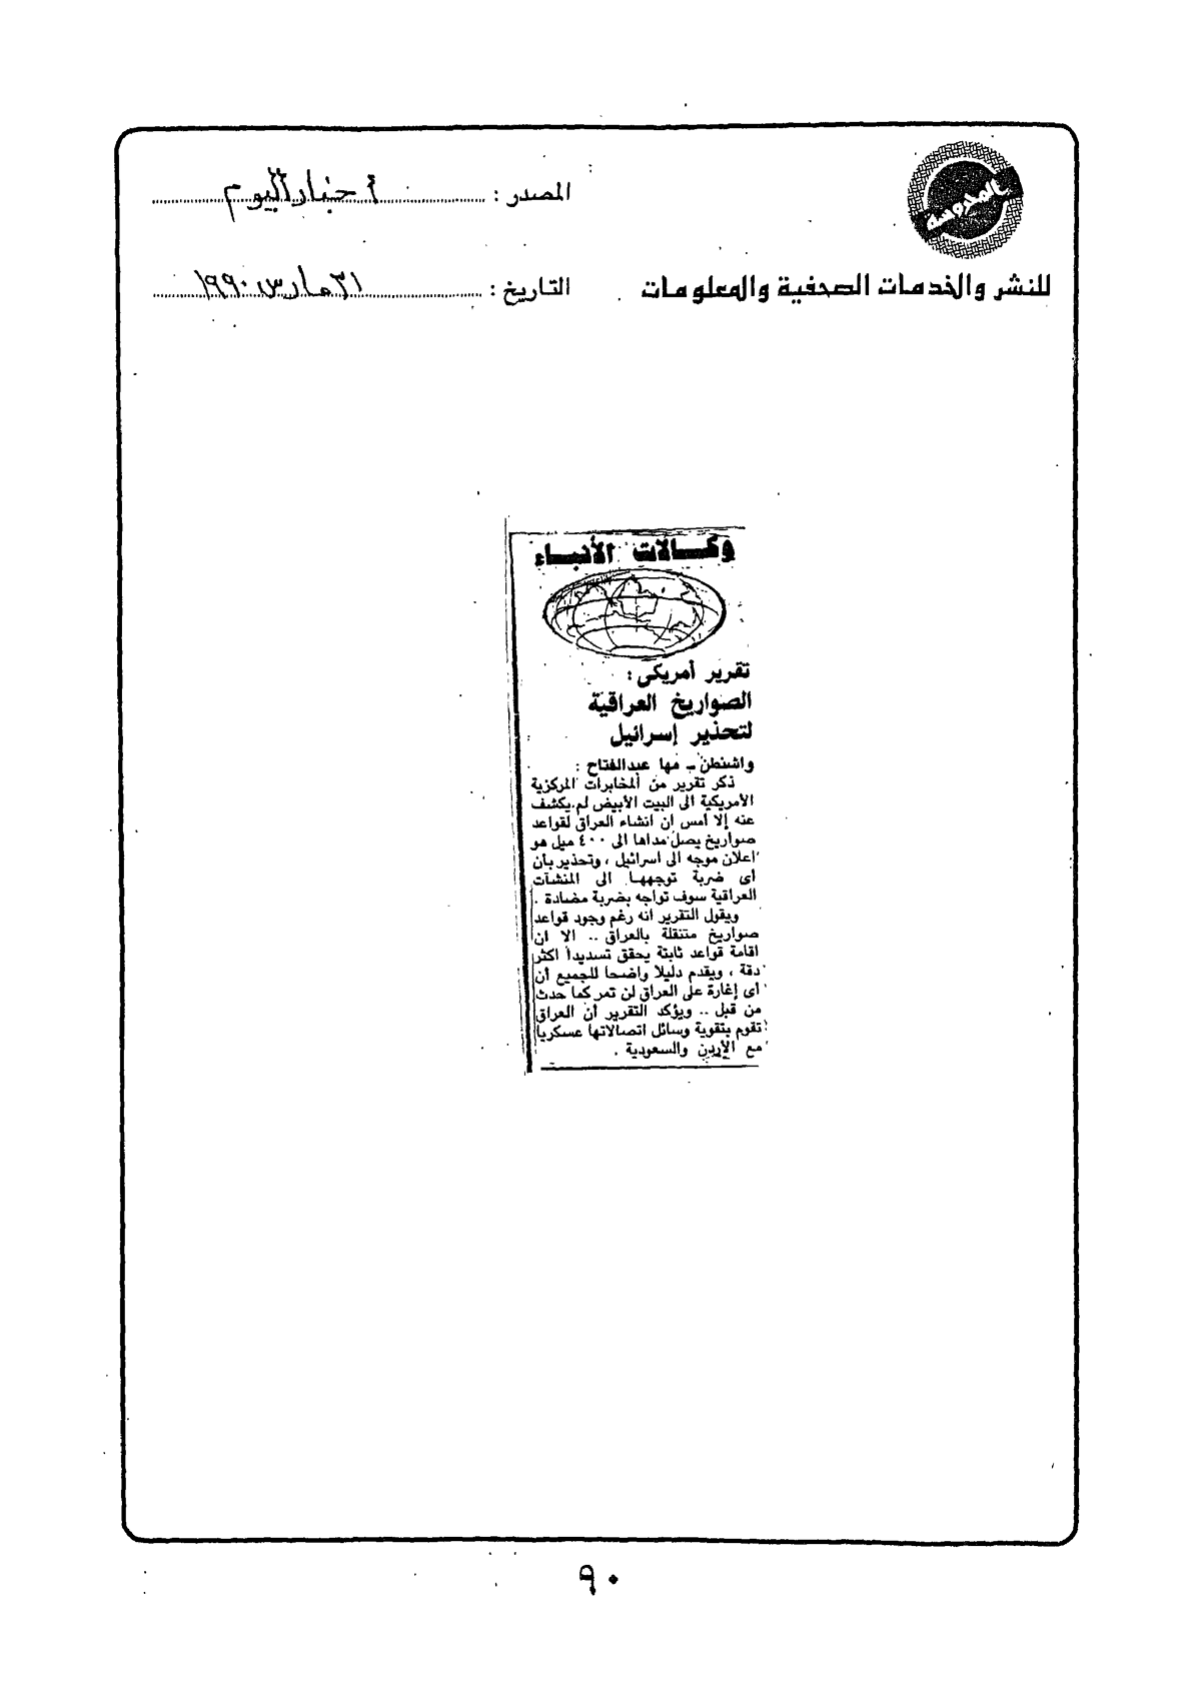 المصدر : أخبار اليوم
للنشر والخدمات الصحفية والمعلومات
التاريخ : ٣١ مارس ١٩٩٠
وكالات الأنباء
تقرير أمريكى :
الصواريخ العراقية
لتحذير إسرائيل
واشنطن - مها عبدالفتاح :
ذكر تقرير من المخابرات المركزية
الأمريكية الى البيت الأبيض لم يكشف
عنه إلا أمس ان انشاء العراق لقواعد
صواريخ يصل مداها الى ٤٠٠ ميل هو
اعلان موجه الى اسرائيل ، وتحذير بأن
اى ضربة توجهها الى المنشآت
العراقية سوف تواجه بضربة مضادة .
ويقول التقرير انه رغم وجود قواعد
صواريخ متنقلة بالعراق .. الا ان
اقامة قواعد ثابتة يحقق تسديداً اكثر
دقة ، ويقدم دليلا واضحا للجميع أن
اى إغارة على العراق لن تمر كما حدث
من قبل .. ويؤكد التقرير أن العراق
تقوم بتقوية وسائل اتصالاتها عسكريا
مع الأردن والسعودية .
٩٠